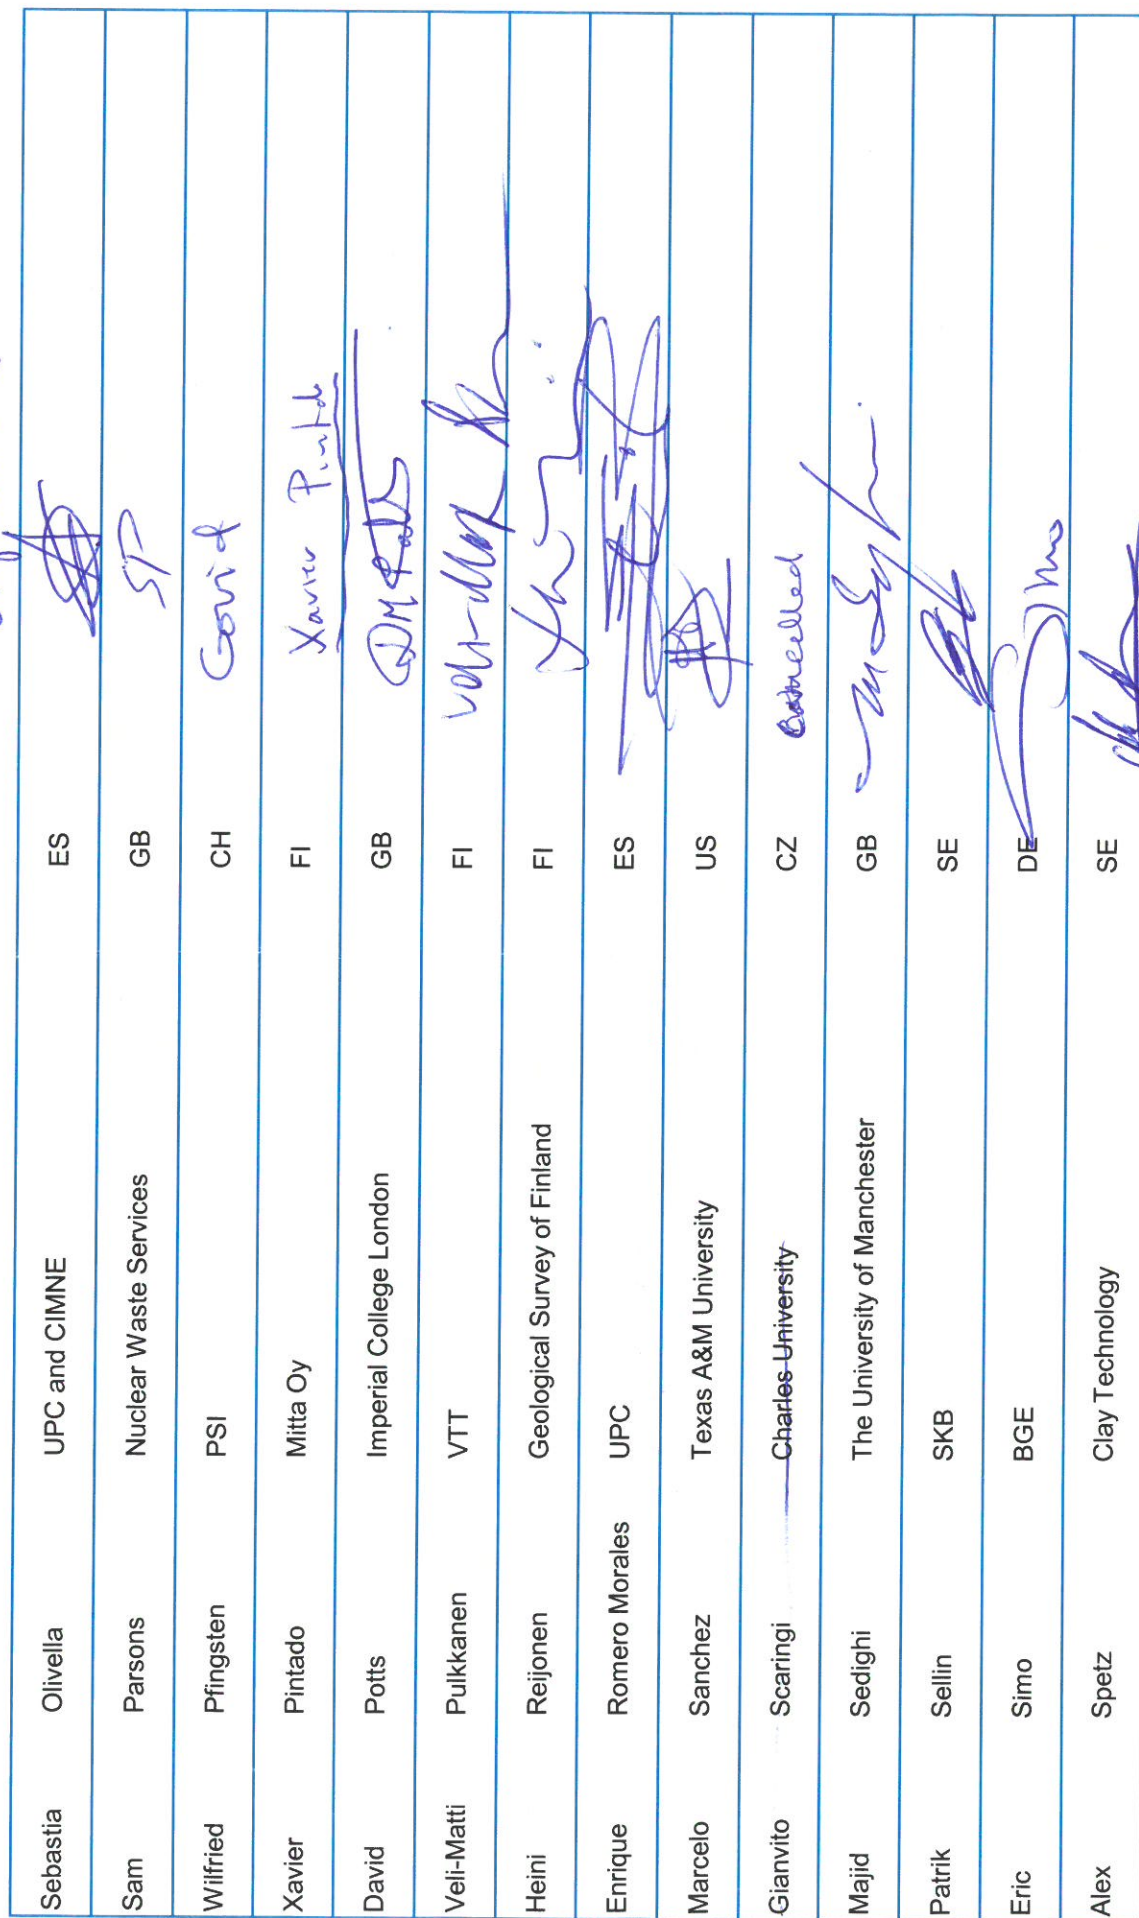 Sebastia Olivella UPC and CIMNE ES
Sam Parsons Nuclear Waste Services GB SP
Wilfried Pfingsten PSI CH Covid
Xavier Pintado Mitta Oy FI Xavier Pintado
David Potts Imperial College London GB DM Potts
Veli-Matti Pulkkanen VTT FI
Heini Reijonen Geological Survey of Finland FI
Enrique Romero Morales UPC ES
Marcelo Sanchez Texas A&M University US
Gianvito Scaringi Charles University CZ Cancelled
Majid Sedighi The University of Manchester GB
Patrik Sellin SKB SE
Eric Simo BGE DE Simo
Alex Spetz Clay Technology SE